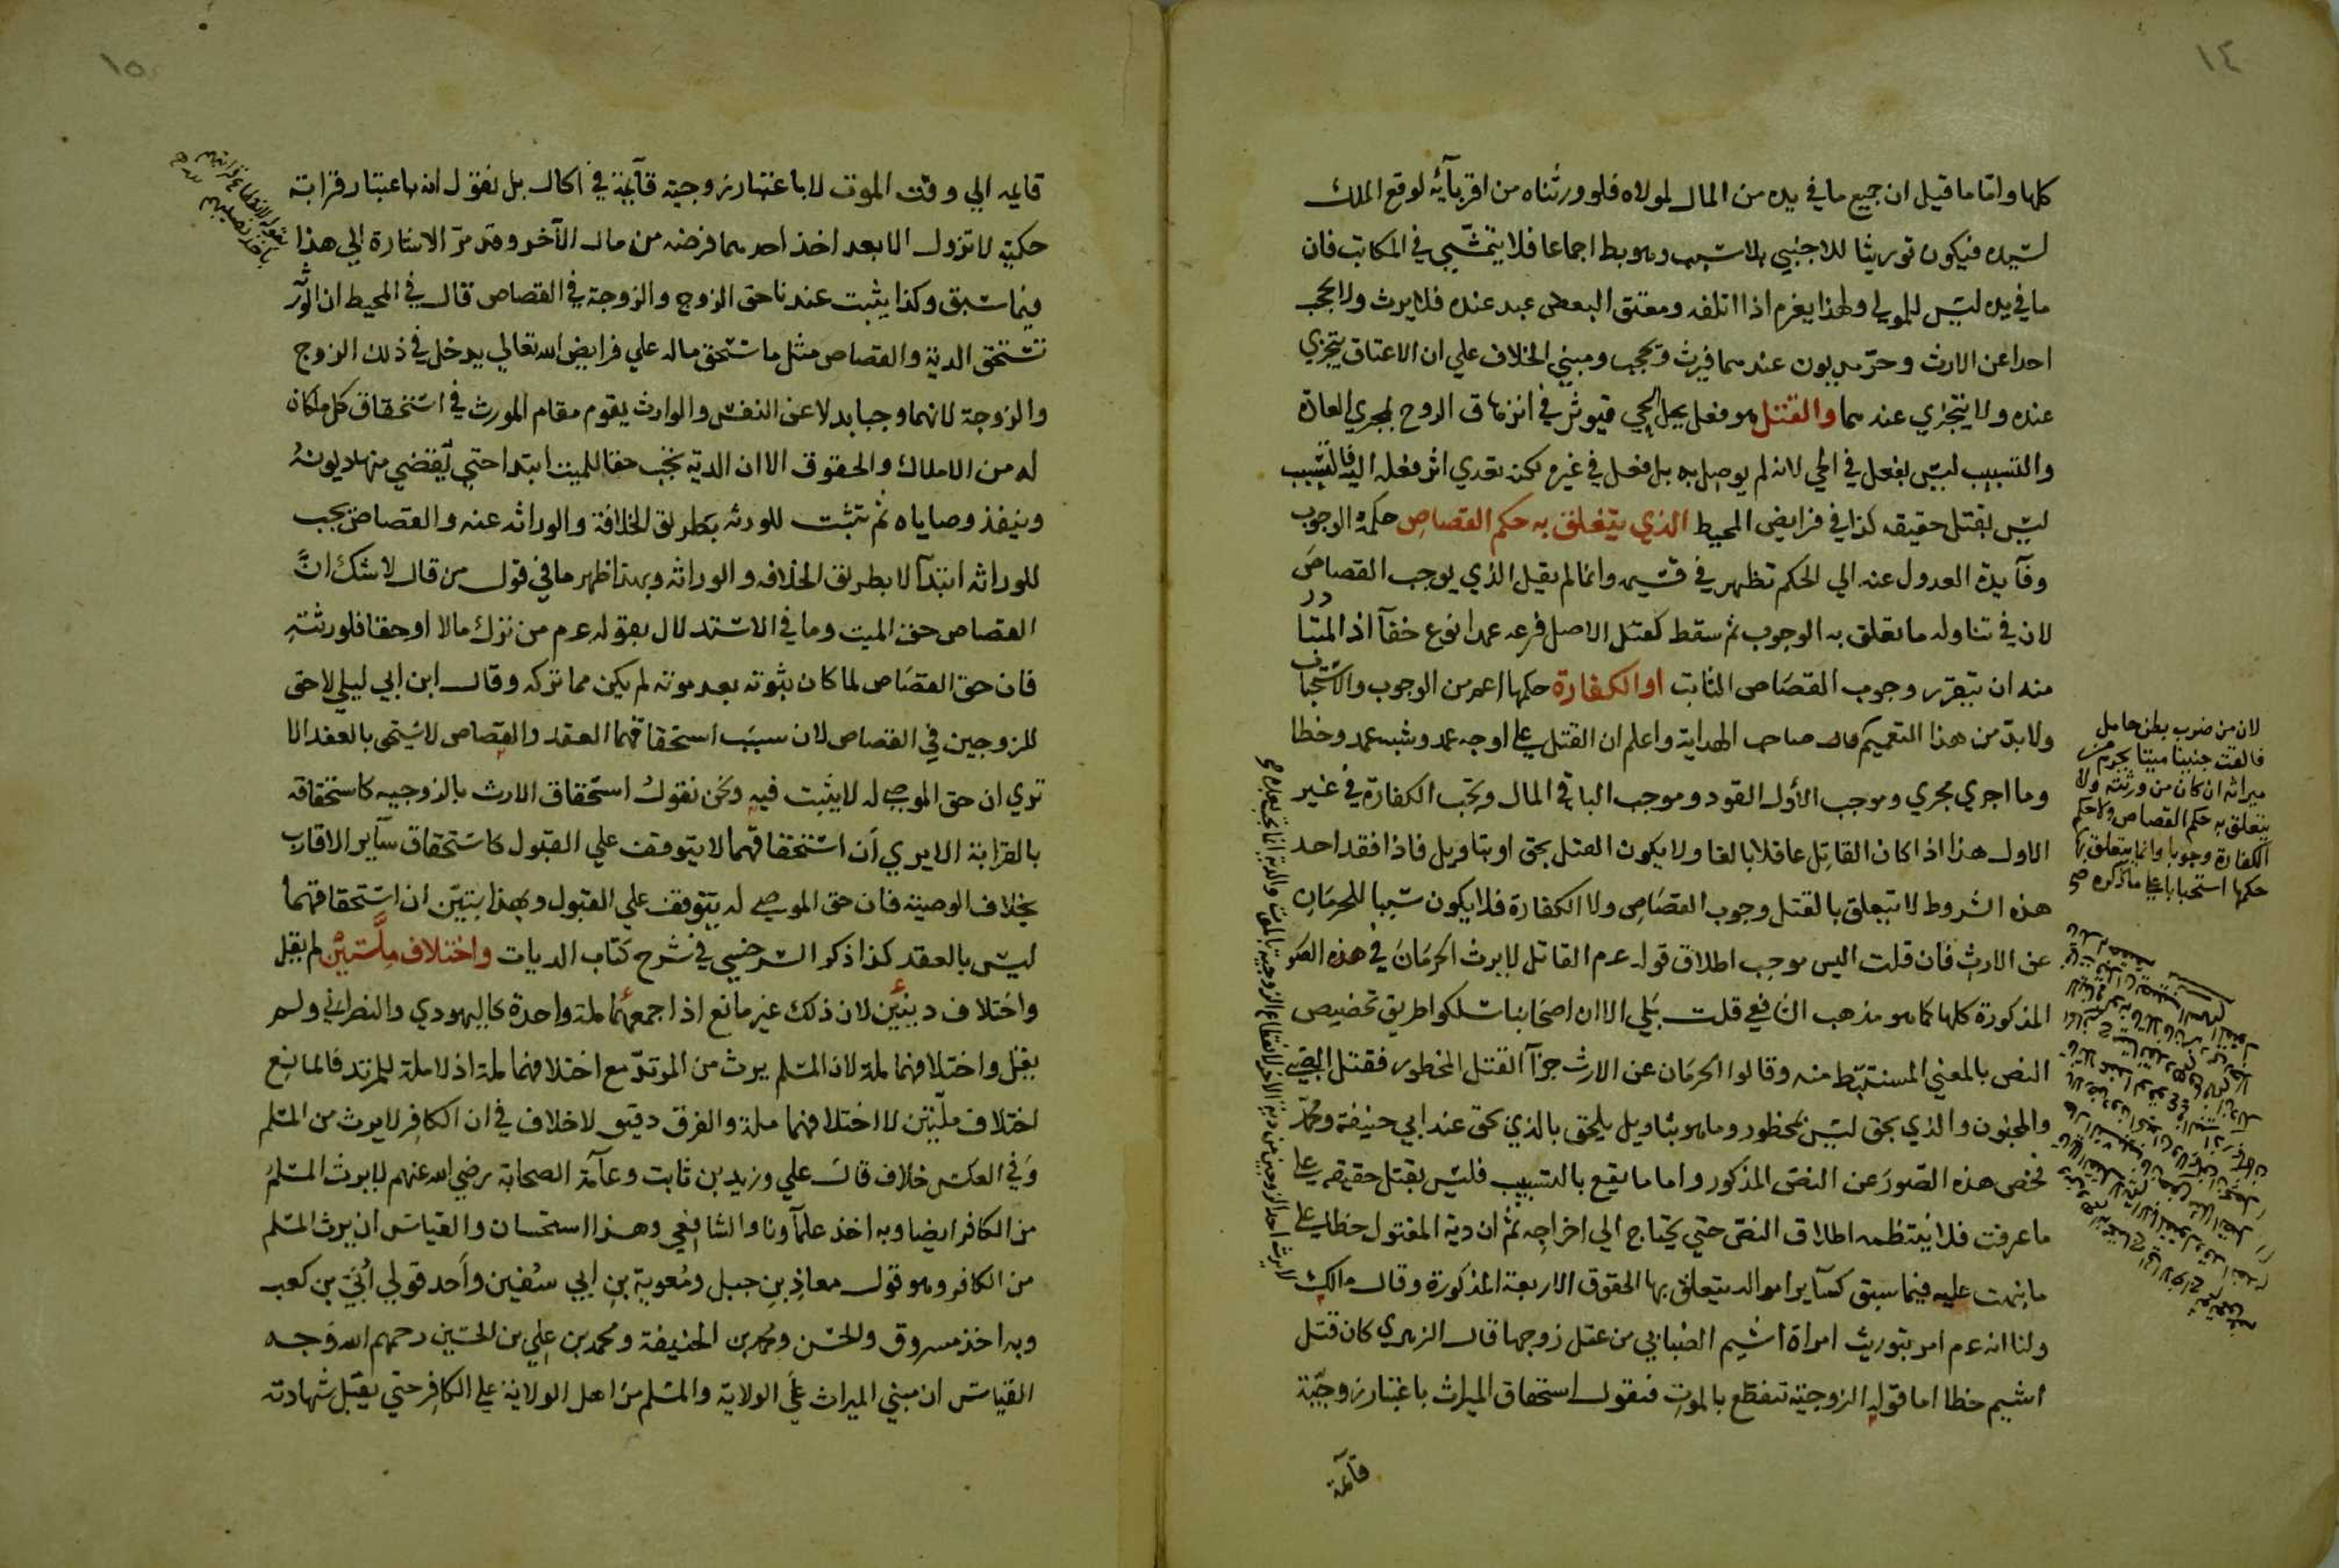 ١٤
كلها واما ما قيل ان جميع ما في يده من المال لمولاه فلو ورثناه من اقربآئه لوقع الملك
لسيده فيكون توريثا للاجنبي بلا سبب وهو بط اجماعا فلا يتمشي في المكاتب فان
ما في يده ليس للمولي ولهذا يغرم اذا اتلفه ومعتق البعض عبد عنده فلا يرث ولا يحجب
احدا عن الارث وحر مديون عندهما فيرث ويحجب ومبني الخلاف علي ان الاعتاق يتجزي
عنده ولا يتجزي عندهما والقتل هو فعل يحل الحي فيوثر في انزهاق الروح لمجري العادة
والتسبيب ليس بفعل في الحي لانه لم يوصل به بل فعل في غيره لكنه تعدي اثر فعله اليه فالتسبيب
ليس بقتل حقيقه كذا في فرايض المحيط الذي يتعلق به حكم القصاص حكمه الوجوب
وفآيدة العدول عنه الي الحكم تظهر في قسيمه وانما لم يقل الذي يوجب القصاص
لان في تناوله ما تعلق به الوجوب ثم سقط كقتل الاصل فرعه عمدا نوع خفآ اذ المتبادر
منه ان يتقرر وجوب القصاص الثابت او الكفارة حكمها اعم من الوجوب والاستحباب
ولا بد من هذا التعميم قال صاحب الهداية واعلم ان القتل علي اوجه عمد وشبه عمد وخطا
وما اجري مجري وموجب الأول القود وموجب الباقي المال ويجب الكفارة في غير
الاول هذا اذا كان القاتل عاقلا بالغا ولا يكون القتل بحق او بتاويل فاذا فقد احد
هذه الشروط لا يتعلق بالقتل وجوب القصاص ولا الكفارة فلا يكون سببا للحرمان
عن الارث فان قلت اليس موجب اطلاق قوله عم القاتل لا يرث الحرمان في هذه الصور
المذكورة كلها كما هو مذهب الشافعي قلت بلي الا ان اصحابنا سلكوا طريق تخصيص
النص بالمعني المستنبط منه وقالوا الحرمان عن الارث جزآ القتل المحظور فقتل الصبي
والمجنون والذي بحق ليس بمحظور وما هو بتاويل يلحق بالذي بحق عند ابي حنيفة ومحمد
فخص هذه الصور عن النص المذكور واما ما يقع بالتسبيب فليس بقتل حقيقه علي
ما عرفت فلا ينتظمه اطلاق النص حتي يحتاج الي اخراجه ثم ان دية المقتول خطا علي
ما نبهت عليه فيما سبق كسآير امواله يتعلق بها الحقوق الاربعة المذكورة وقال مالك
ولنا انه عم امر بتوريث امراة اشيم الضبابي من عقل زوجها قال الزهري كان قتل
اشيم خطا اما قوله الزوجية تنقطع بالموت فنقول استحقاق الميراث باعتبار زوجية
قآئمة
لان من ضرب بطن حامل
فالقت جنينا ميتا يحرم من
ميراثه ان كان من ورثته ولا
يتعلق به حكم القصاص ولا حكم
الكفارة وجوبا وانما يتعلق بها
حكمها استحبابا علي ما ذكره
لا يرث احد الزوجين من دية الاخر لانقطاع الزوجية بالموت والدية انما تجب بعده
١٥
قايمه الي وقت الموت لا باعتبار زوجيته قآيمة في الحال بل نقول انه باعتبار قرابته
حكميه لا تزول الا بعد اخذ احدهما فرضه من مال الآخر وقد مر الاشارة الي هذا
فيما سبق وكذا يثبت عندنا حق الزوج والزوجة في القصاص قال في المحيط ان الورثة
تستحق الدية والقصاص مثل ما تستحق ماله علي فرايض الله تعالي يدخل في ذلك الزوج
والزوجة لانهما وجبا بدلا عن النفس والوارث يقوم مقام المورث في استحقاق كل ما كان
له من الاملاك والحقوق الا ان الدية تجب حقا للميت ابتدا حتي تقضي منها ديونه
وينفذ وصاياه ثم تثبت للورثه بطريق الخلافة والوراثه عنه والقصاص يجب
للوراثه ابتدآ لا بطريق الخلافه والوراثه وبهذا ظهر ما في قول من قال لا شك ان
القصاص حق الميت وما في الاستدلال بقوله عم من ترك مالا او حقا فلورثته
فان حق القصاص لما كان بثوته بعد موته لم يكن مما تركه وقال ابن ابي ليلي لا حق
للزوجين في القصاص لان سبب استحقاقهما العقد والقصاص لا يستحق بالعقد الا
تري ان حق الموصي له لا يثبت فيه ونحن نقول استحقاق الارث بالزوجيه كاستحقاقه
بالقرابة الا يري ان استحقاقهما لا يتوقف علي القبول كاستحقاق سآير الاقارب
بخلاف الوصية فان حق الموصي له يتوقف علي القبول وبهذا يتبين ان استحقاقهما
ليس بالعقد كذا ذكر السرخسي في شرح كتاب الديات واختلاف ملتين لم يقل
واختلاف دينين لان ذلك غير مانع اذا جمعهما ملة واحدة كاليهودي والنصراني ولم
يقل واختلافهما ملة لان المسلم يرث من المرتد مع اختلافهما ملة اذ لا ملة للمرتد فالمانع
اختلاف ملتين لا اختلافهما ملة والفرق دقيق لا خلاف في ان الكافر لا يرث من المسلم
وفي العكس خلاف قال علي وزيد بن ثابت وعآمة الصحابة رضي الله عنهم لا يرث المسلم
من الكافر ايضا وبه اخذ علمآونا والشافعي وهذا استحسان والقياس ان يرث المسلم
من الكافر وهو قول معاذ بن جبل ومعوية بن ابي سفين وأحد قولي أبي بن كعب
وبه اخذ مسروق والحسن ومحمد بن الحنيفة ومحمد بن علي بن الحسين رحمهم الله وجه
القياس ان مبني الميراث علي الولاية والمسلم من اهل الولاية علي الكافر حتي يقبل شهادته